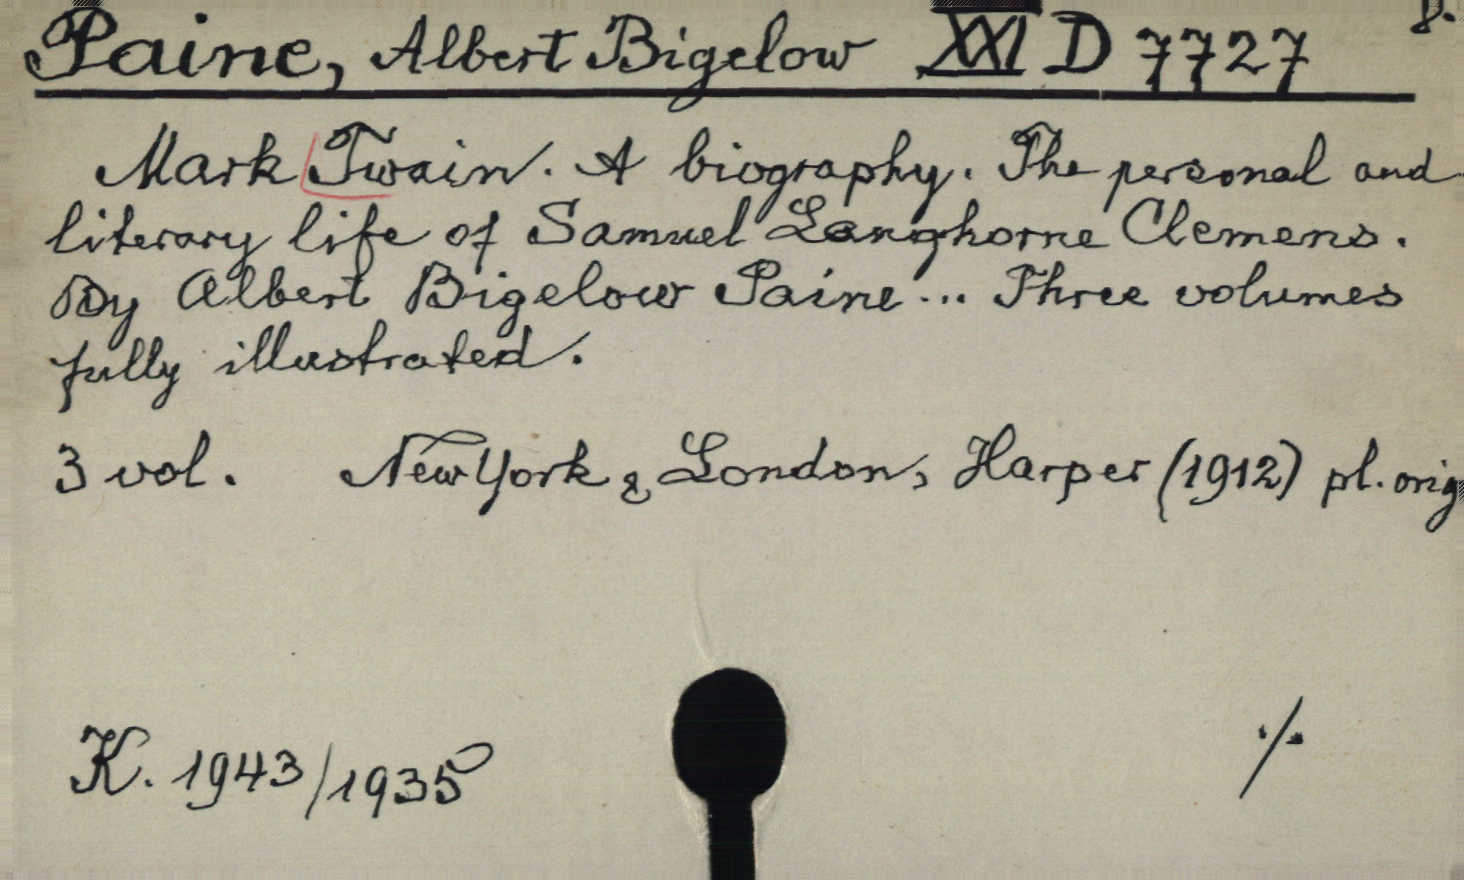 Paine, Albert Bigelow XXI D 7727 8.
Mark Twain. A biography. The personal and
literary life of Samuel Langhorne Clemens.
By Albert Bigelow Paine... Three volumes
fully illustrated.
3 vol. New York & London, Harper (1912) pl. orig
K. 1943/1935 ./.